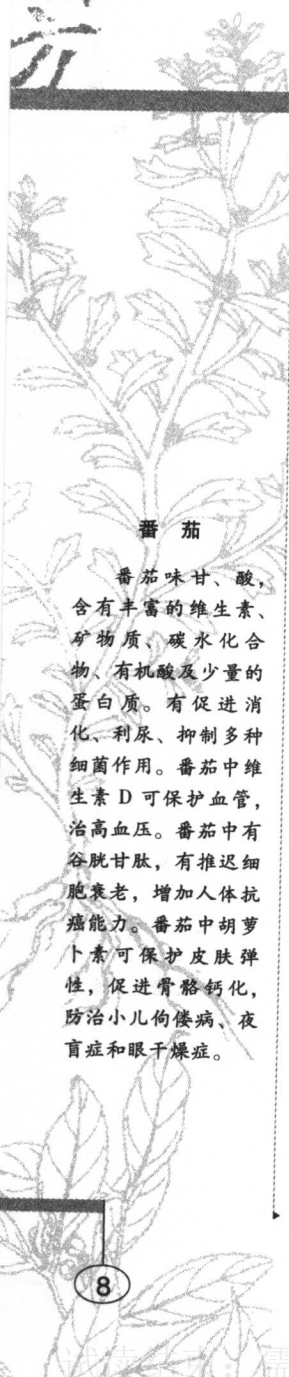 番 茄
番茄味甘、酸，
含有丰富的维生素、
矿物质、碳水化合
物、有机酸及少量的
蛋白质。有促进消
化、利尿、抑制多种
细菌作用。番茄中维
生素 D 可保护血管，
治高血压。番茄中有
谷胱甘肽，有推迟细
胞衰老，增加人体抗
癌能力。番茄中胡萝
卜素可保护皮肤弹
性，促进骨骼钙化，
防治小儿佝偻病、夜
盲症和眼干燥症。
8